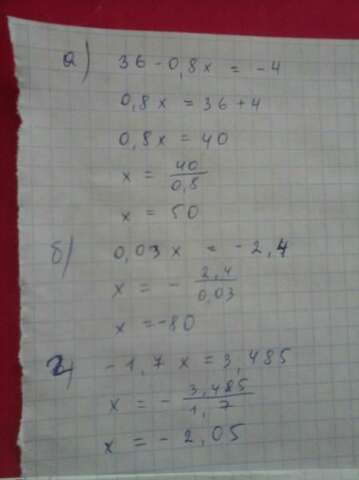 а) 36 - 0,8x = -4
0,8x = 36 + 4
0,8x = 40
x = 40/0,8
x = 50
б) 0,03x = -2,4
x = - 2,4/0,03
x = -80
г) -1,7x = 3,485
x = - 3,485/1,7
x = -2,05